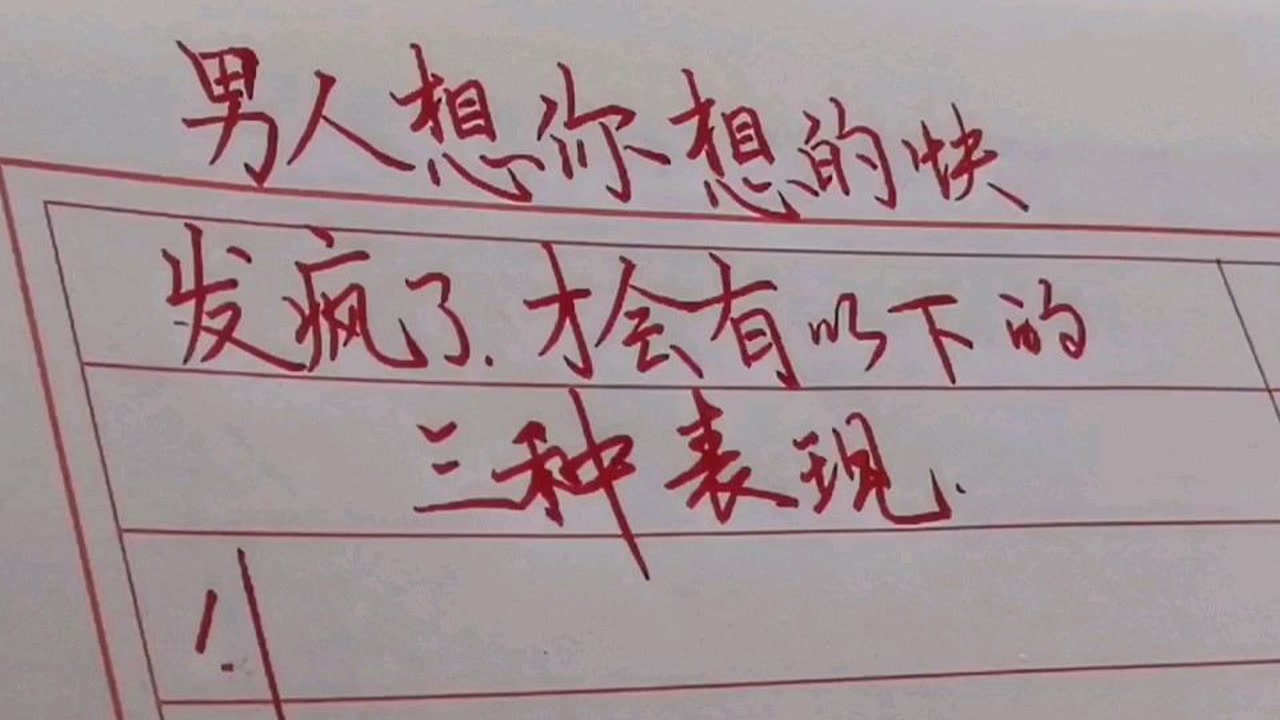 男人想你想的快
发疯了.才会有以下的
三种表现.
1.